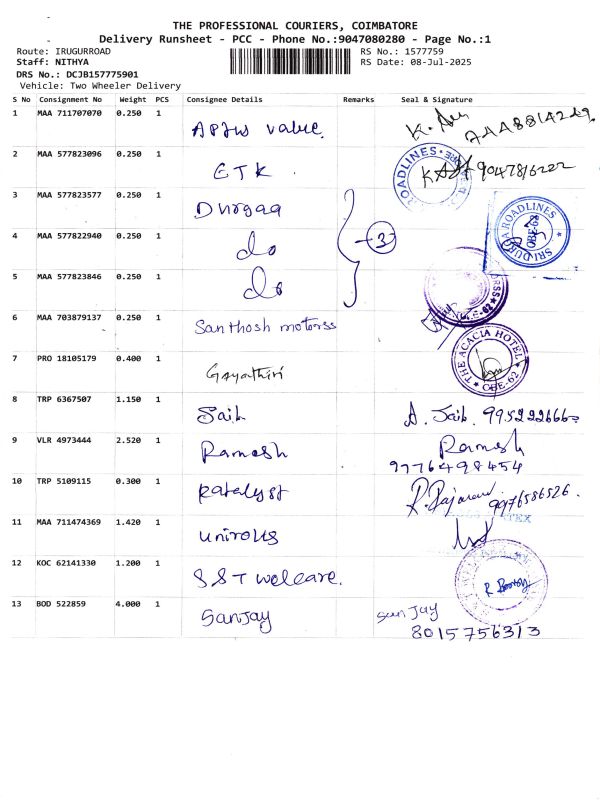 THE PROFESSIONAL COURIERS, COIMBATORE
Delivery Runsheet - PCC - Phone No.:9047080280 - Page No.:1
Route: IRUGURROAD RS No.: 1577759
Staff: NITHYA RS Date: 08-Jul-2025
DRS No.: DCJB157775901
Vehicle: Two Wheeler Delivery
S No Consignment No Weight PCS Consignee Details Remarks Seal & Signature
1 MAA 711707070 0.250 1 value.
2 MAA 577823096 0.250 1 GTK 9047816222
ROADLINES
3 MAA 577823577 0.250 1 Durgaa
SRI DURGA ROADLINES
CBE-62
4 MAA 577822940 0.250 1 do 3
5 MAA 577823846 0.250 1 do
6 MAA 703879137 0.250 1 Santhosh motorss
THE ACACIA HOTEL
CBE-62
7 PRO 18105179 0.400 1 Gayathiri
8 TRP 6367507 1.150 1 Saik A. Saik
9 VLR 4973444 2.520 1 Ramesh Ramesh
9776498454
10 TRP 5109115 0.300 1 Katalyst 9976586526.
11 MAA 711474369 1.420 1 unirolls
12 KOC 62141330 1.200 1 SST welcare.
13 BOD 522859 4.000 1 Sanjay Sanjay
8015756313